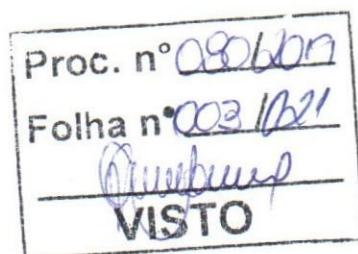 Proc. nº 080/2019
Folha nº 003 /021
VISTO